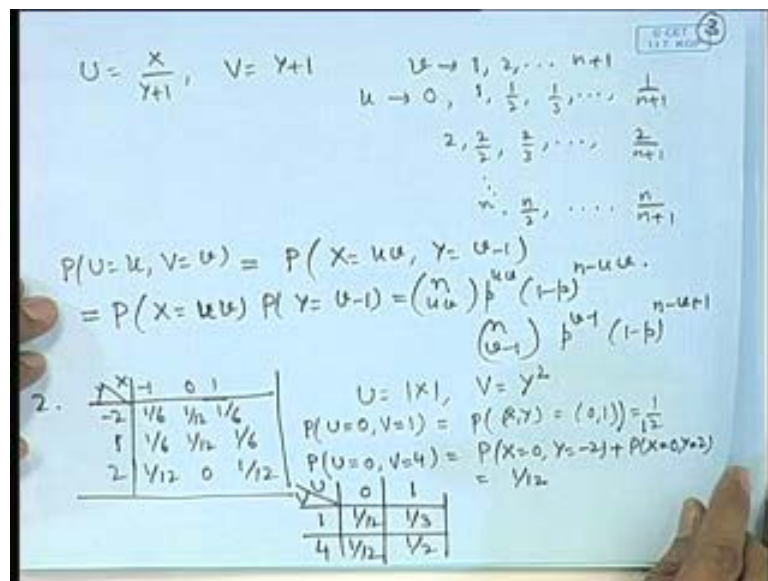 3
U = X/Y+1, V = Y+1
v → 1, 2, ... n+1
u → 0, 1, 1/2, 1/3, ..., 1/n+1
2, 2/2, 2/3, ..., 2/n+1
n, n/2, ...., n/n+1
P(U=u, V=v) = P(X=uv, Y=v-1)
= P(X=uv) P(Y=v-1) = (n uv) p^uv (1-p)^n-uv.
(n v-1) p^v-1 (1-p)^n-v+1
2.
Y X | -1 0 1
-2 | 1/6 1/12 1/6
1 | 1/6 1/12 1/6
2 | 1/12 0 1/12
U = |X|, V = Y²
P(U=0, V=1) = P((X,Y) = (0,1)) = 1/12
P(U=0, V=4) = P(X=0, Y=-2) + P(X=0, Y=2)
= 1/12
V U | 0 | 1
1 | 1/12 | 1/3
4 | 1/12 | 1/2